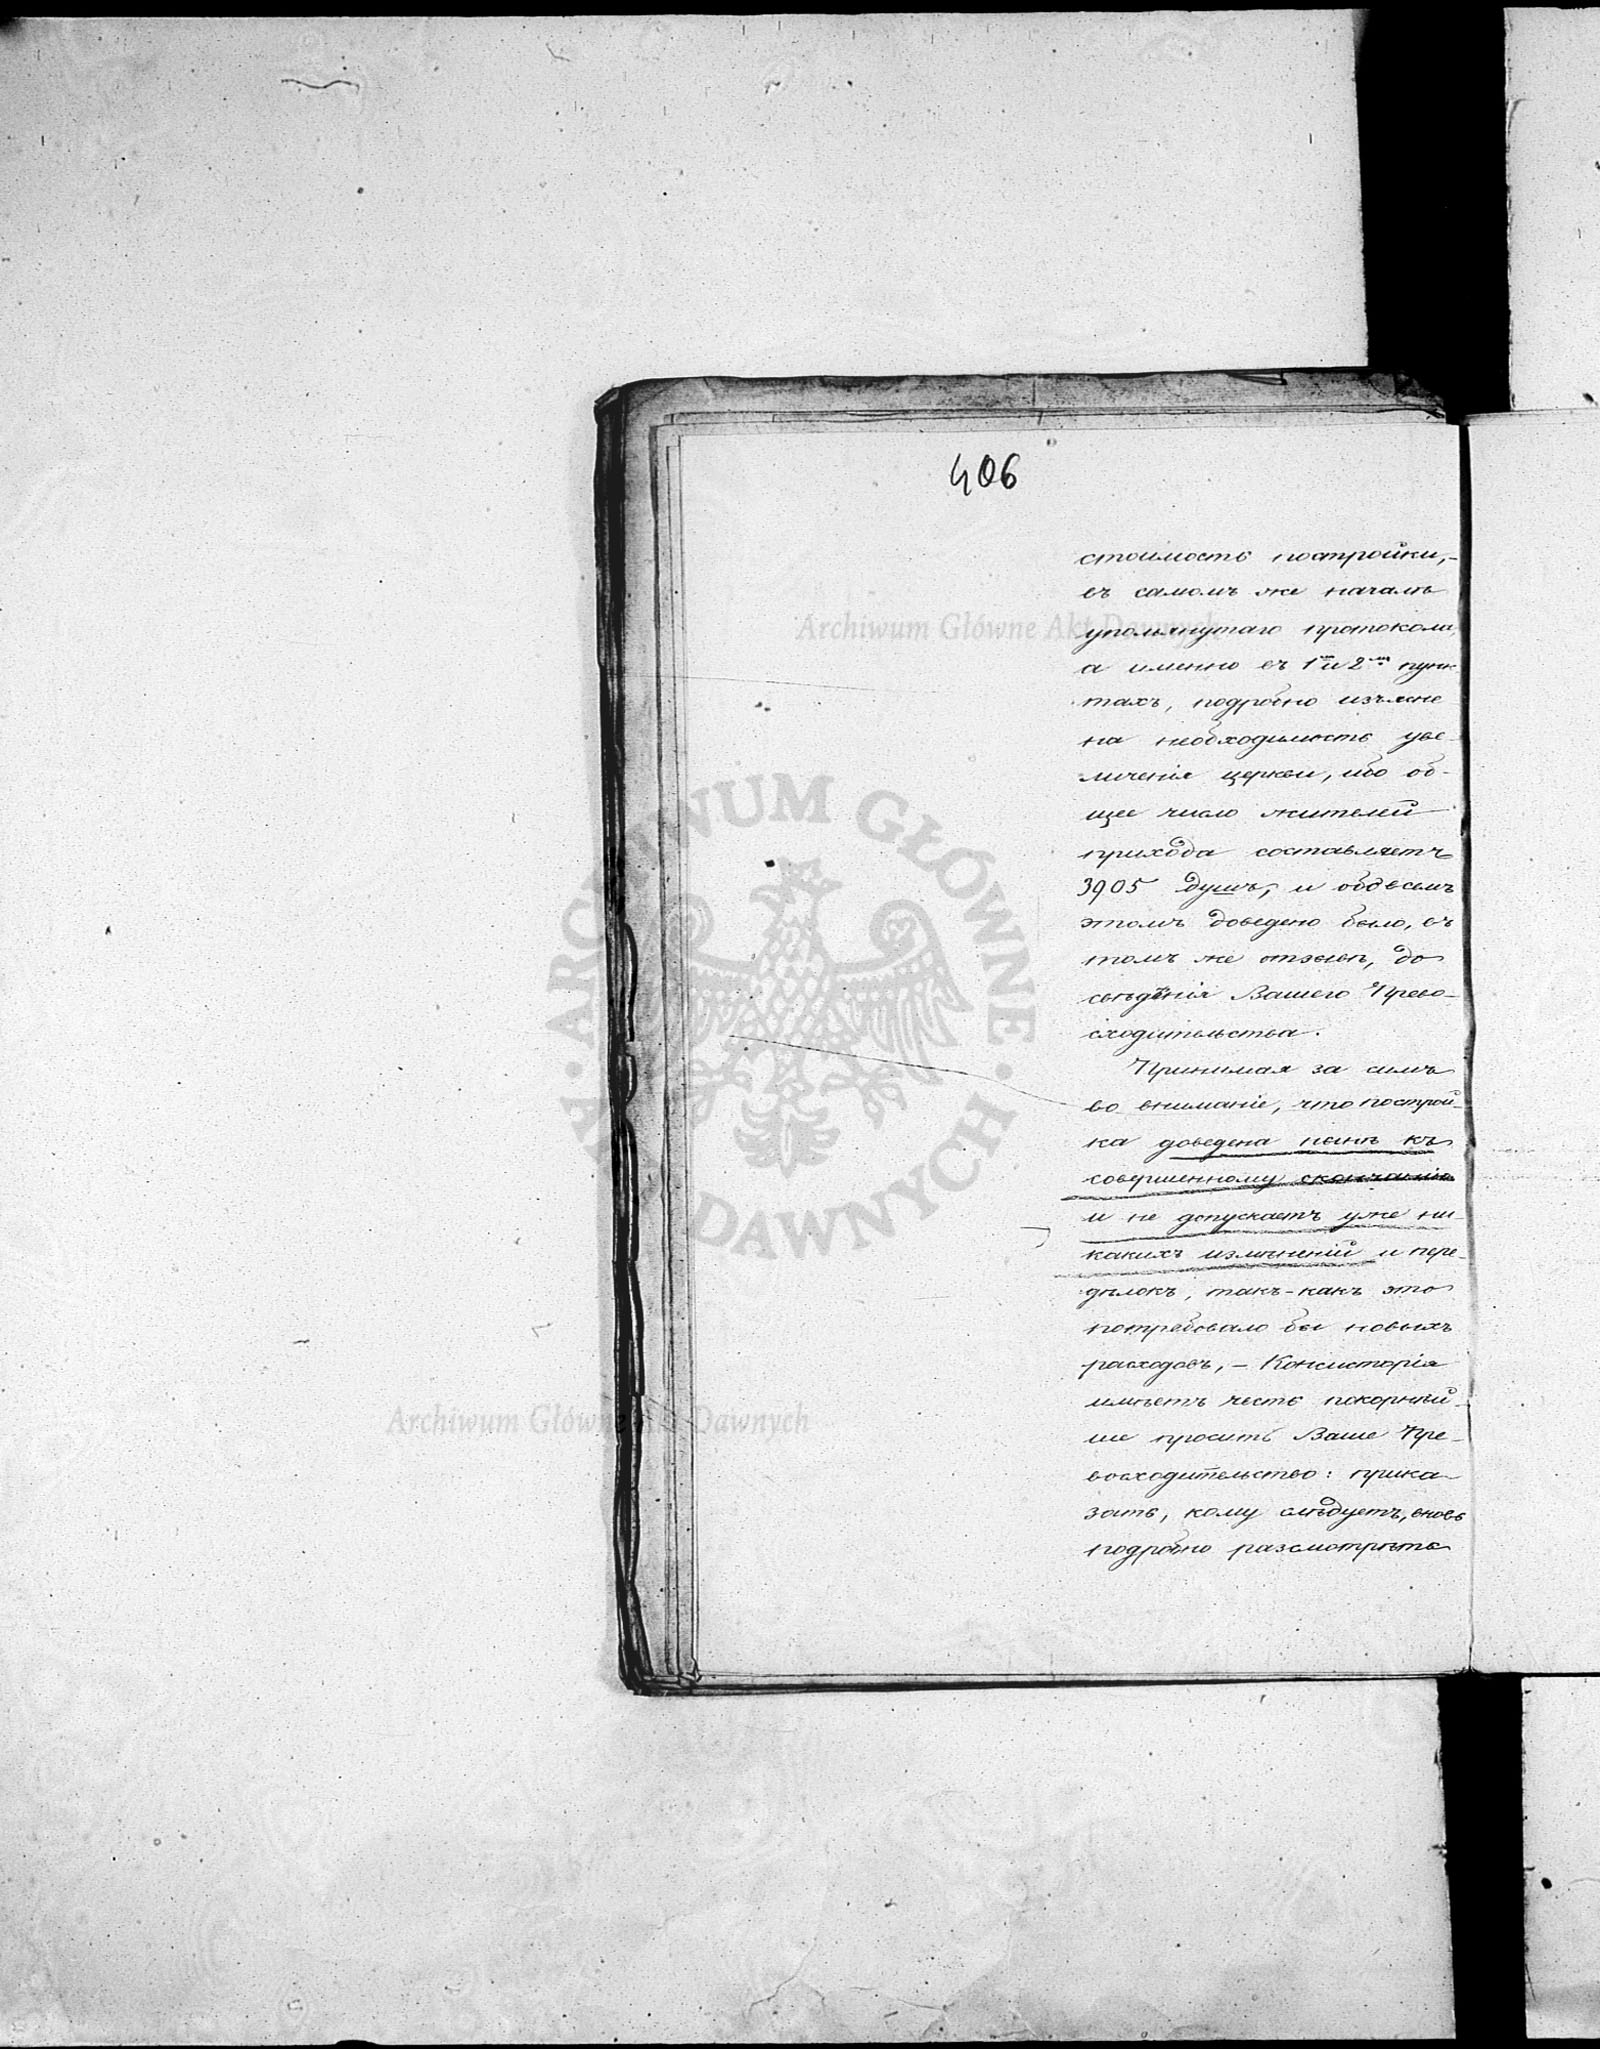 406
стоимость постройки,-
въ самомъ же началѣ
упомянутаго протокола,
а именно въ 1<sup>мъ</sup> и 2<sup>мъ</sup> пунк
тахъ, подробно изъясне
на необходимость уве-
личенія церкви, ибо об-
щее число жителей
прихода составляетъ
3905 душъ, и обо всемъ
этомъ доведено было, въ
томъ же отзывѣ, до
свѣдѣнія Вашего Прево-
сходительства.
Принимая за симъ
во вниманіе, что построй-
ка доведена нынѣ къ
совершенному скончанію
и не допускаетъ уже ни-
какихъ измѣненій и пере-
дѣлокъ, такъ-какъ это
потребовало бы новыхъ
расходовъ, - Консисторія
имѣетъ честь покорнѣй-
ше просить Ваше Пре-
восходительство: прика-
зать, кому слѣдуетъ, вновь
подробно разсмотрѣть
Archiwum Główne Akt Dawnych
ARCHIWUM GŁÓWNE · AKT DAWNYCH ·
Archiwum Główne Akt Dawnych